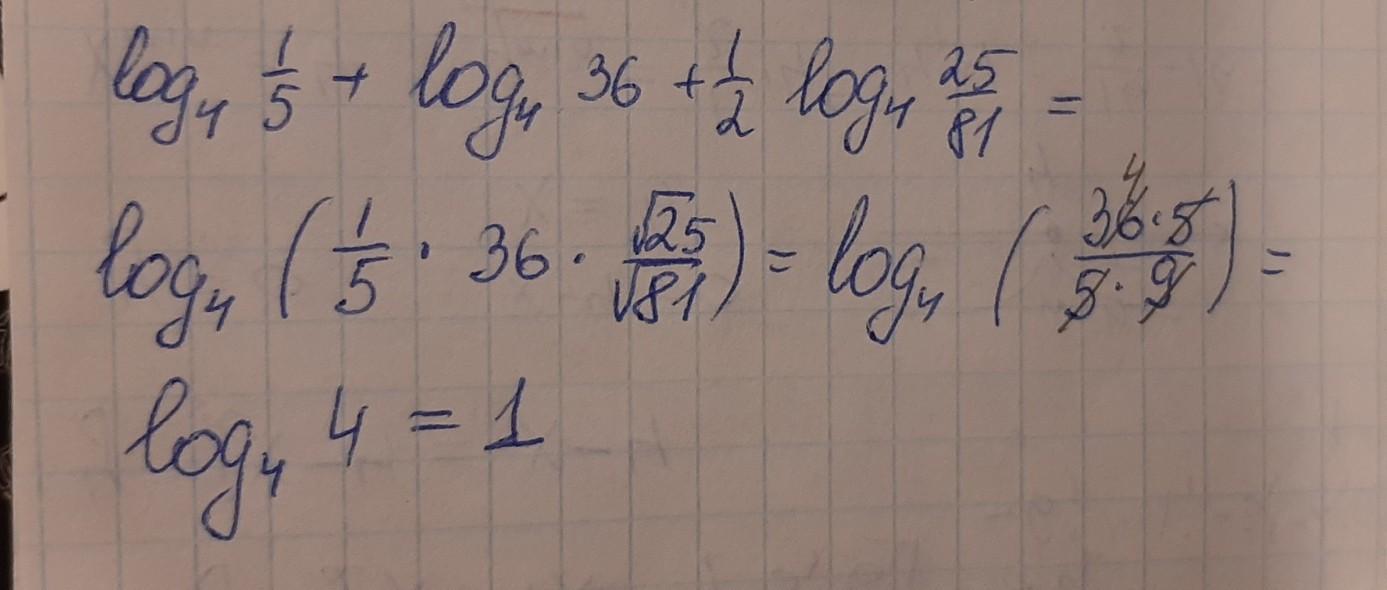 log₄ 1/5 + log₄ 36 + 1/2 log₄ 25/81 =
log₄ (1/5 · 36 · √25/√81) = log₄ (36 · 5/5 · 9) = 4
log₄ 4 = 1